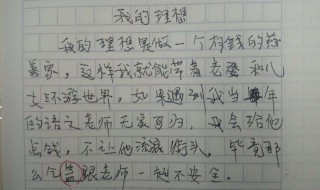 我的理想
我的理想是做一个有钱的慈
善家，这样我就能带着老婆和儿
女环游世界，如果遇到我当年
的语文老师无家可归，我会给他
点钱，不让他流浪街头，毕竟那
么 跟老师一起不安全。